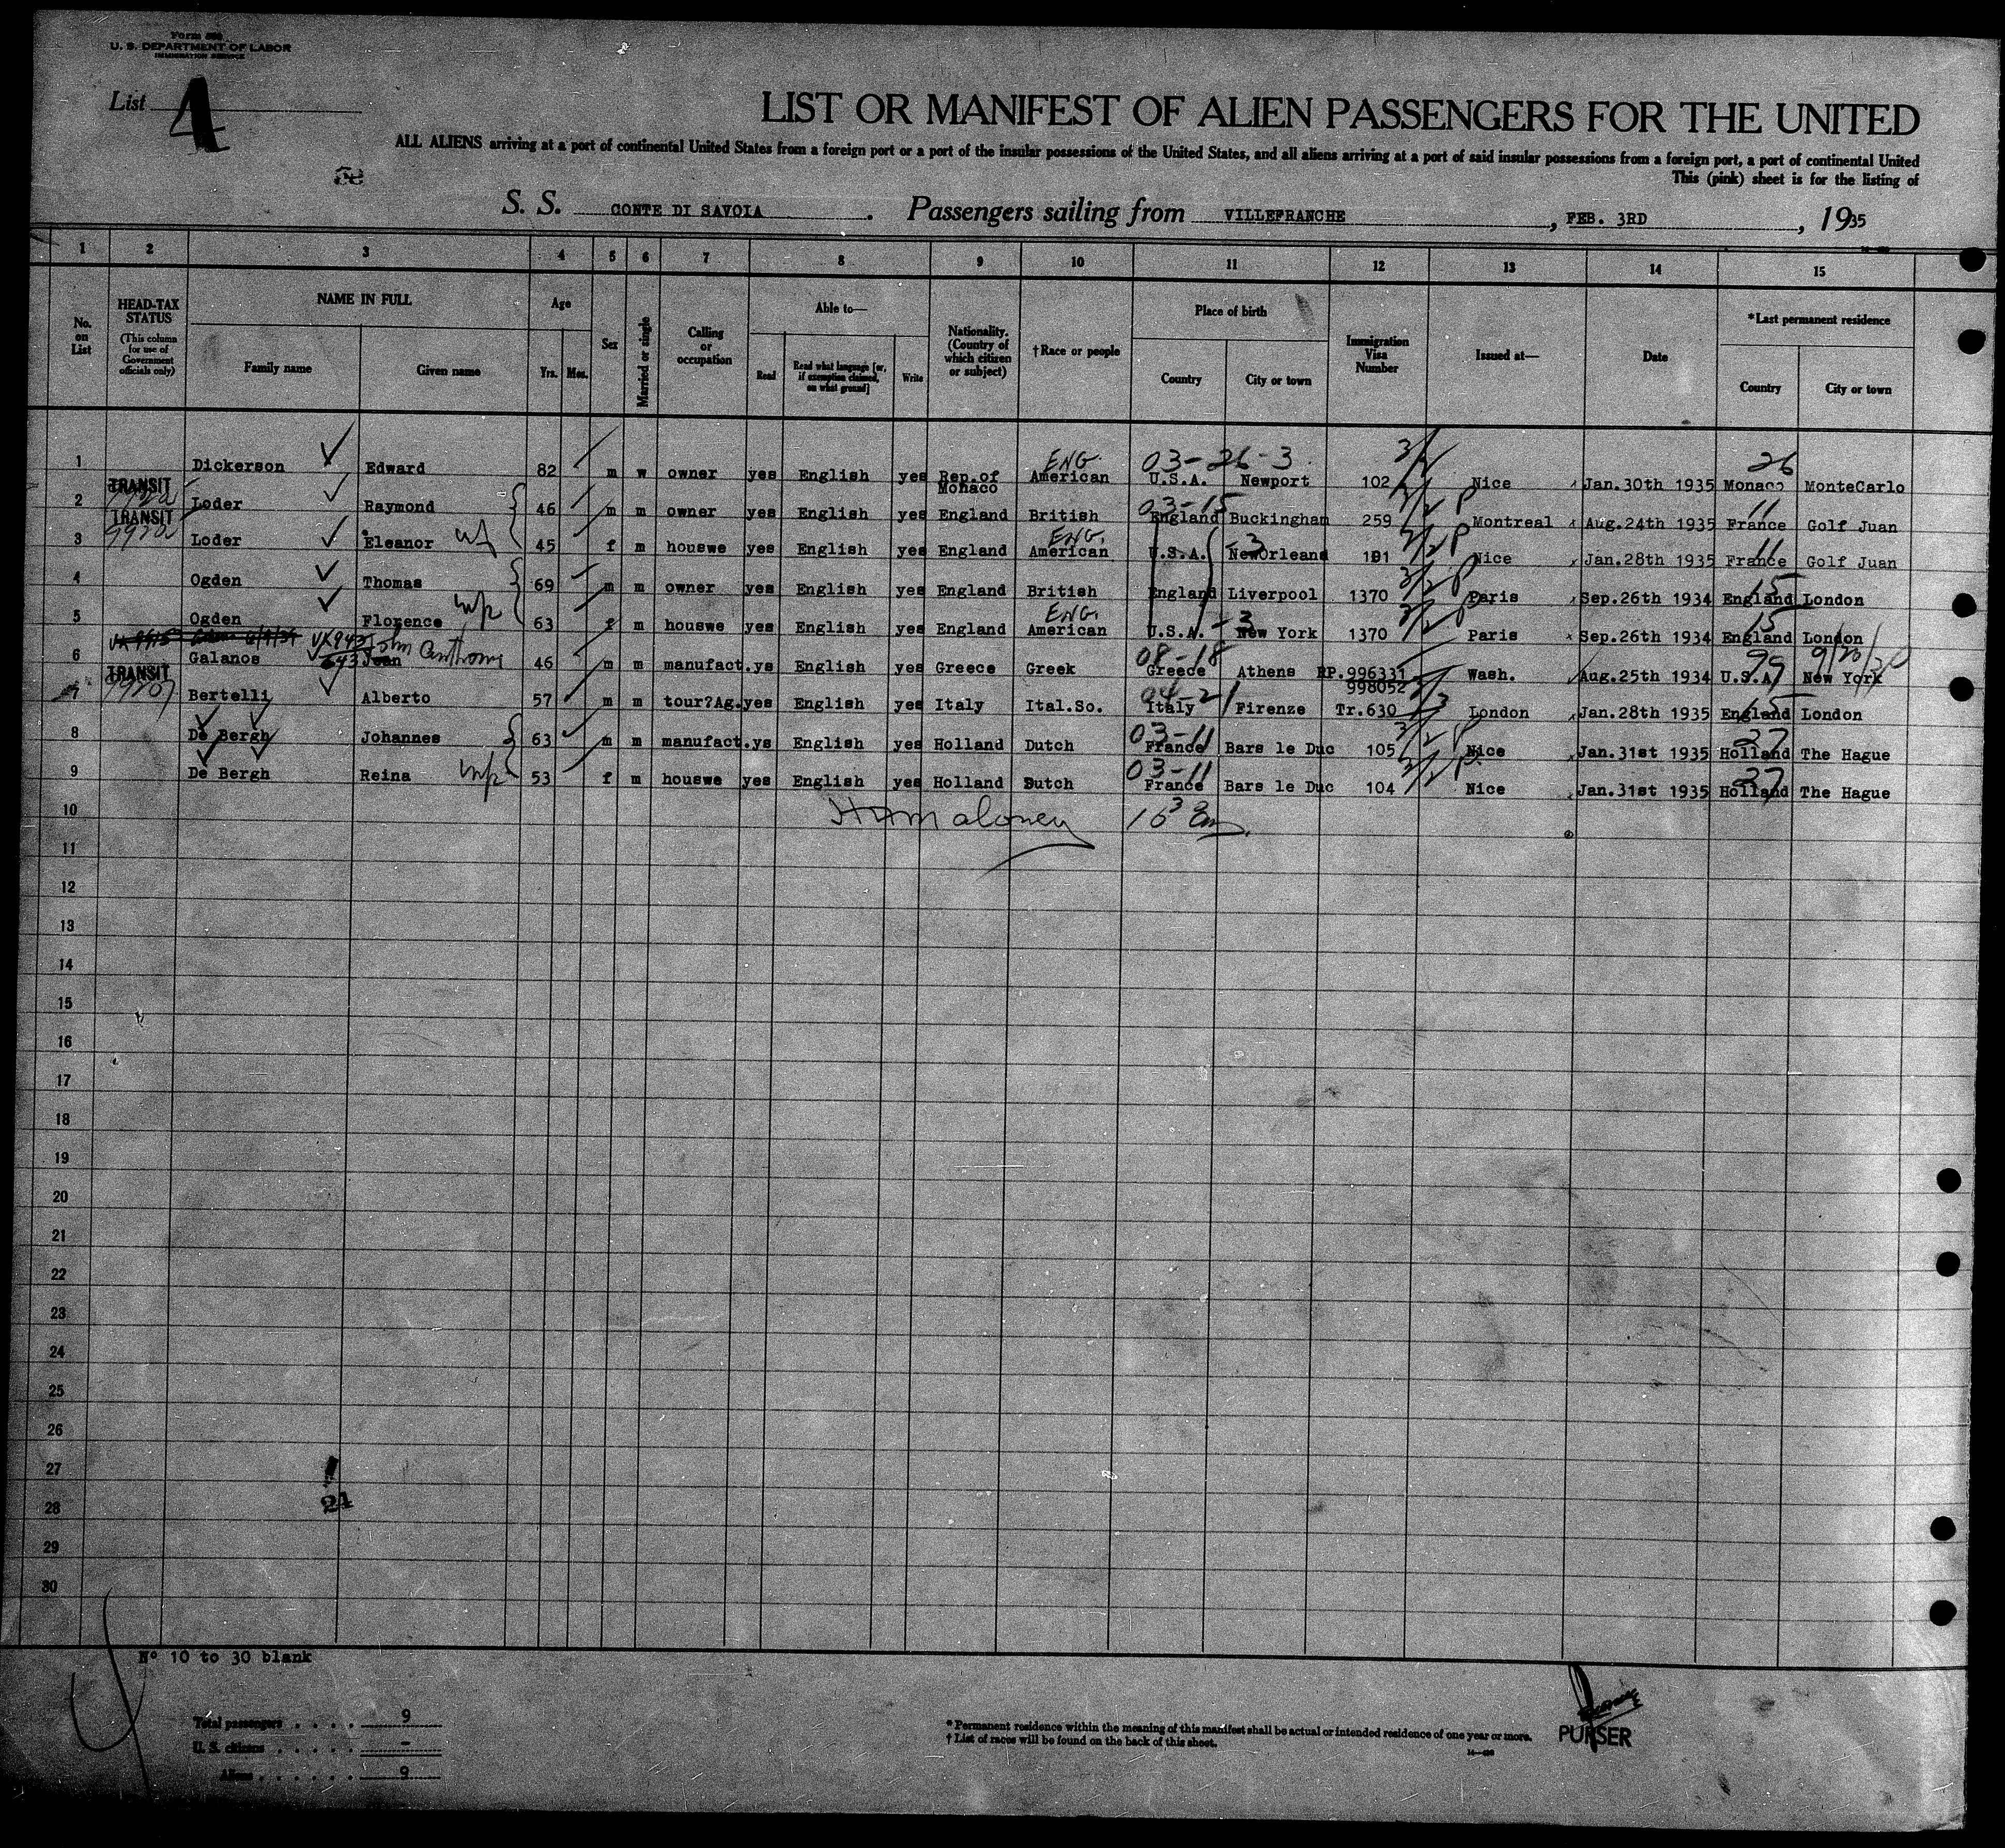 Form 500
U. S. DEPARTMENT OF LABOR
IMMIGRATION SERVICE
List 4
LIST OR MANIFEST OF ALIEN PASSENGERS FOR THE UNITED
ALL ALIENS arriving at a port of continental United States from a foreign port or a port of the insular possessions of the United States, and all aliens arriving at a port of said insular possessions from a foreign port, a port of continental United
This (pink) sheet is for the listing of
S. S. CONTE DI SAVOIA. Passengers sailing from VILLEFRANCHE, FEB. 3RD, 1935
1 2 3 4 5 6 7 8 9 10 11 12 13 14 15
No. on List
HEAD-TAX STATUS (This column for use of Government officials only)
NAME IN FULL Family name Given name
Age Yrs. Mos.
Sex
Married or single
Calling or occupation
Able to— Read Read what language [or, if exemption claimed, on what ground] Write
Nationality. (Country of which citizen or subject)
†Race or people
Place of birth Country City or town
Immigration Visa Number
Issued at—
Date
*Last permanent residence Country City or town
ENG 03-26-3 26
1 Dickerson Edward 82 m w owner yes English yes Rep.of Monaco American U.S.A. Newport 102 Nice Jan.30th 1935 Monaco MonteCarlo
TRANSIT 03-15 11
2 Loder Raymond 46 m m owner yes English yes England British England Buckingham 259 Montreal Aug.24th 1935 France Golf Juan
TRANSIT ENG. 3 11
3 Loder Eleanor wf 45 f m houswe yes English yes England American U.S.A. NewOrleans 191 Nice Jan.28th 1935 France Golf Juan
15
4 Ogden Thomas 69 m m owner yes English yes England British England Liverpool 1370 Paris Sep.26th 1934 England London
ENG. 3 15
5 Ogden Florence 63 f m houswe yes English yes England American U.S.A. New York 1370 Paris Sep.26th 1934 England London
John Anthony 08-18 99 9/20/
6 Galanos Jean 46 m m manufact.ys English yes Greece Greek Greece Athens RP.996331 998052 Wash. Aug.25th 1934 U.S.A. New York
TRANSIT 04-21 15
7 Bertelli Alberto 57 m m tour?Ag.yes English yes Italy Ital.So. Italy Firenze Tr.630 London Jan.28th 1935 England London
03-11 27
8 De Bergh Johannes 63 m m manufact.ys English yes Holland Dutch France Bars le Duc 105 Nice Jan.31st 1935 Holland The Hague
03-11 27
9 De Bergh Reina 53 f m houswe yes English yes Holland Dutch France Bars le Duc 104 Nice Jan.31st 1935 Holland The Hague
10 Maloney
11
12
13
14
15
16
17
18
19
20
21
22
23
24
25
26
27
28
29
30
24
Nº 10 to 30 blank
Total passengers . . . . 9
U. S. citizens . . . . . -
Aliens . . . . . . 9
* Permanent residence within the meaning of this manifest shall be actual or intended residence of one year or more.
† List of races will be found on the back of this sheet.
PURSER